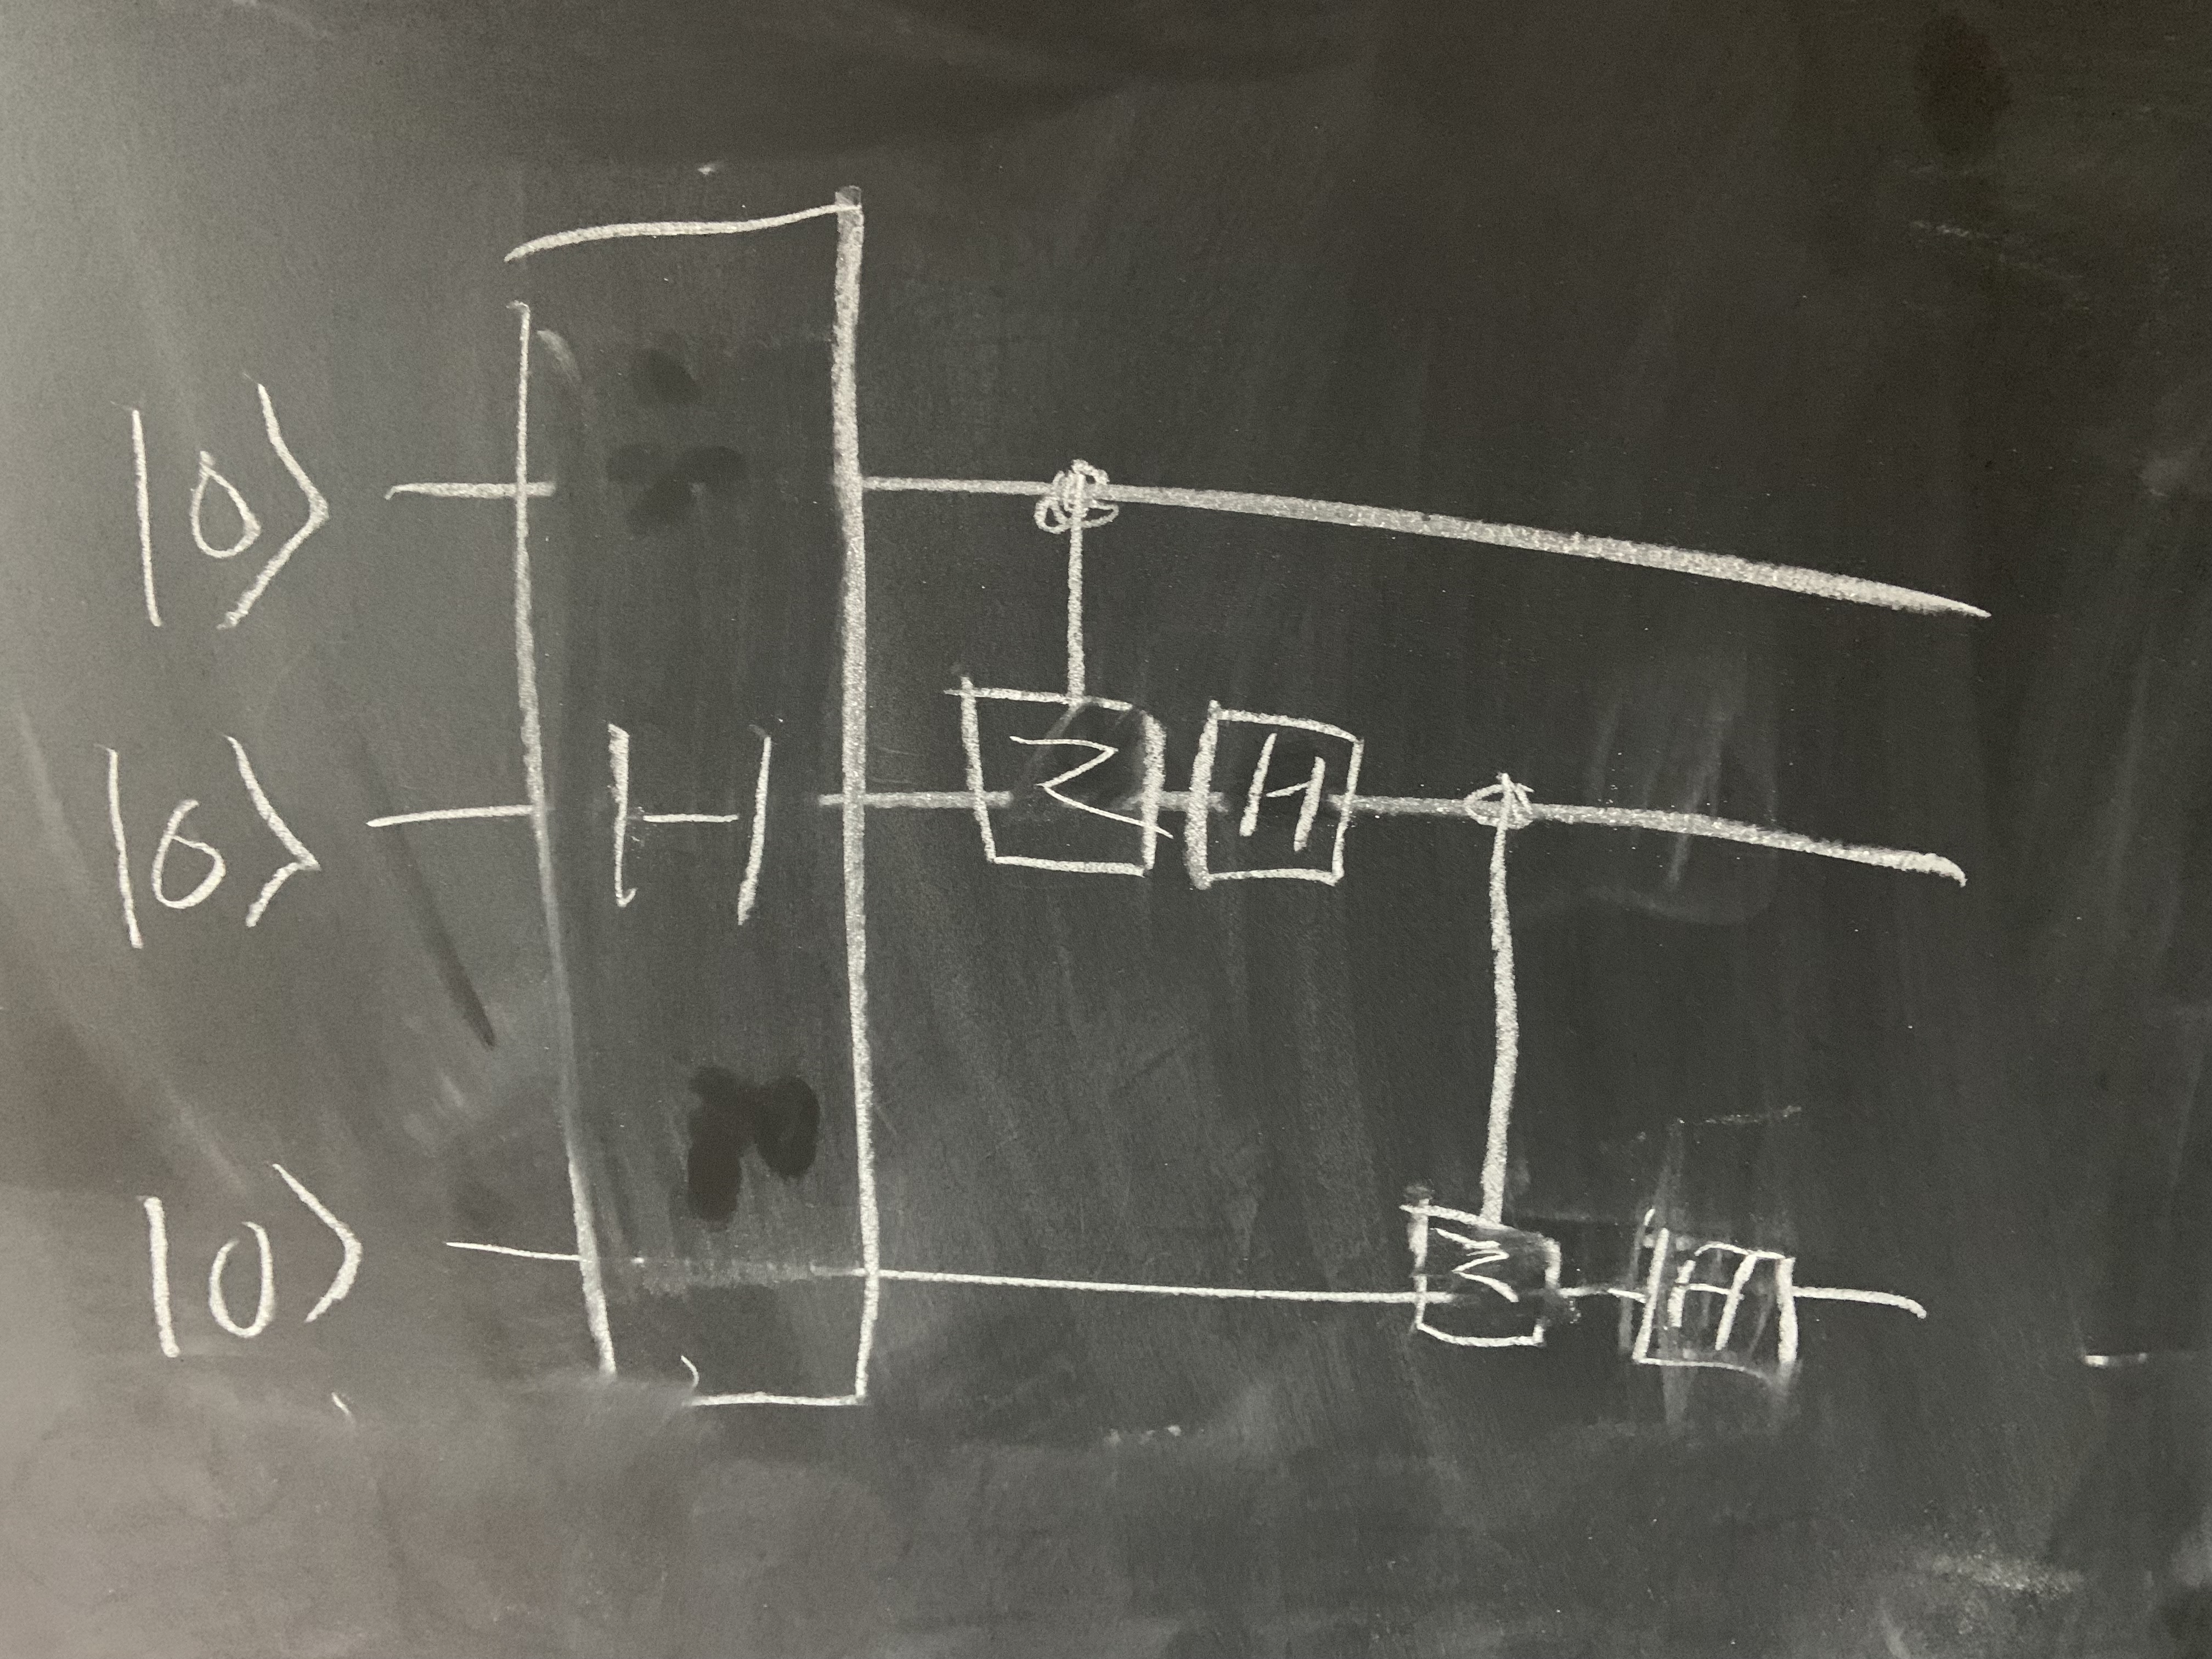 |0⟩
|0⟩ H Z H
|0⟩ Z H